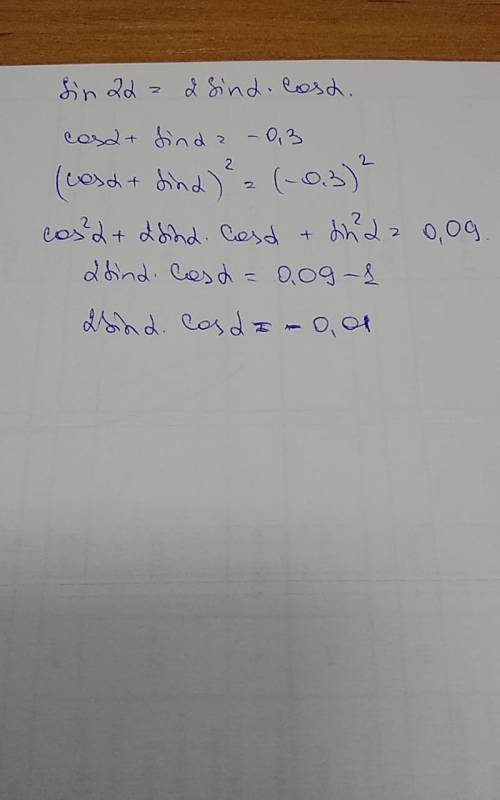 sin 2α = 2 sinα · cosα.
cosα + sinα = -0,3
(cosα + sinα)² = (-0,3)²
cos²α + 2sinα · cosα + sin²α = 0,09.
2sinα · cosα = 0,09 - 1
2sinα · cosα = - 0,01